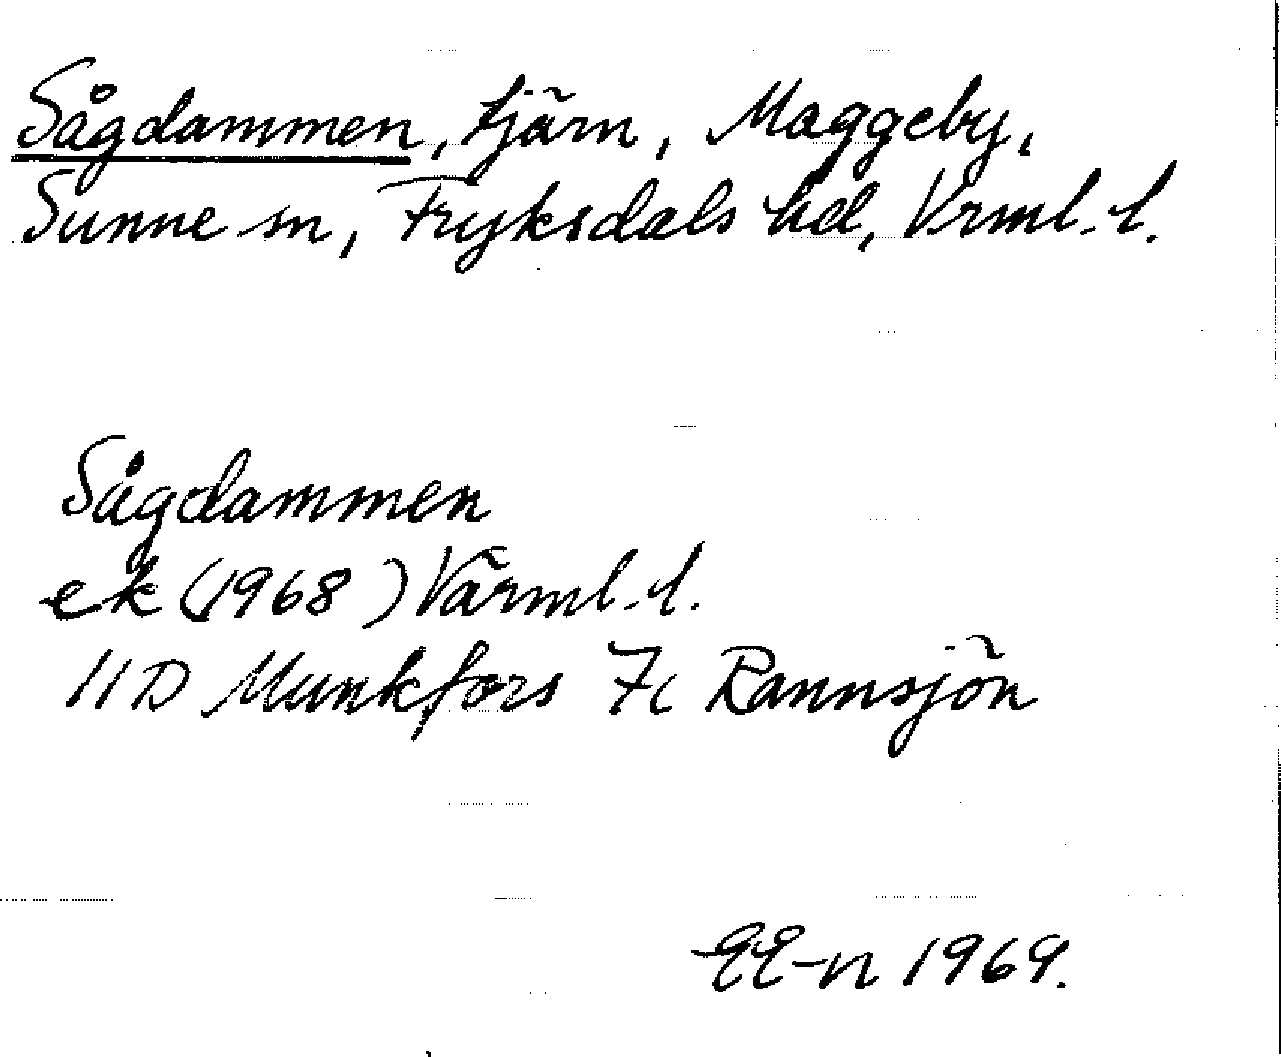 Sågdammen, tjärn, Maggeby,
Sunne sn, Fryksdals hd, Vrml. l.
Sågdammen
ek (1968) Värml. l.
11D Munkfors 7c Rannsjön
EE-n 1969.